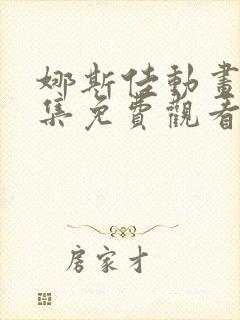 娜斯佳動畫
集免費觀看
房家才